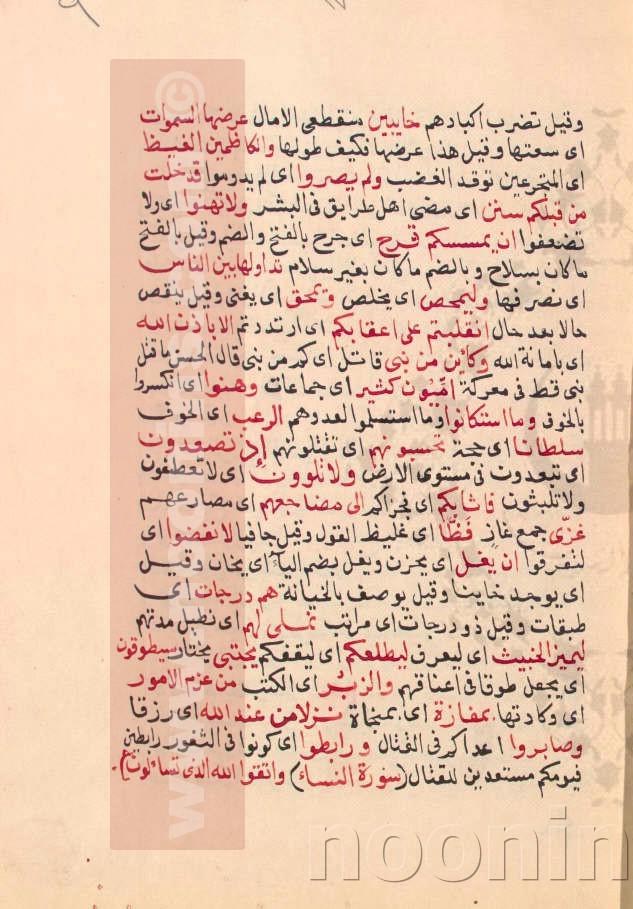 وقيل تضرب اكبادهم خايبين منقطعى الامال عرضها السموات
اى سعتها وقيل هذا عرضها فكيف طولها والكاظمين الغيظ
اى المتجرعين توقد الغضب ولم يصروا اى لم يدوموا قد خلت
من قبلكم سنن اى مضى اهل طرايق فى البشر ولا تهنوا اى ولا
تضعفوا ان يمسسكم قرح اى جرح بالفتح والضم وقيل بالفتح
ما كان بسلاح وبالضم ما كان بغير سلام نداولها بين الناس
اى نصرفها وليمحص اى يخلص ويمحق اى يغنى وقيل ينقص
حالا بعد حال انقلبتم على اعقابكم اى ارتددتم الا باذن الله
اى بامانة الله وكاين من نبى قاتل اى كم من نبى قال الحسن ما قتل
نبى قط فى معركة ربيون كثير اى جماعات وهنوا اى انكسروا
بالخوف وما استكانوا وما استسلموا لعدوهم الرعب اى الخوف
سلطانا اى حجة تحسونهم اى تقتلونهم اذ تصعدون
اى تبعدون فى مستوى الارض ولا تلوون اى لا تعطفون
ولا تلبثون فاثابكم اى فجزاكم الى مضاجعهم اى مصارعهم
غزى جمع غاز فظا اى غليظ القول وقيل جافيا لانفضوا اى
لتفرقوا ان يغل اى يخون ويغل بضم الياء اى يخان وقيل
اى يوجد خاينا وقيل يوصف بالخيانة هم درجات اى
طبقات وقيل ذو درجات اى مراتب نملى لهم اى نطيل مدتهم
ليميز الخبيث اى ليعرف ليطلعكم اى ليقفكم يجتبى يختار سيطوقون
اى يجعل طوقا فى اعناقهم والزبر اى الكتب من عزم الامور
اى وكادتها بمفازة اى بمنجاة نزلا من عند الله اى رزقا
وصابروا اعداكم فى القتال ورابطوا اى كونوا فى الثغور رابطين
خيولكم مستعدين للقتال (سورة النساء) واتقوا الله الذى تساءلون
noonin